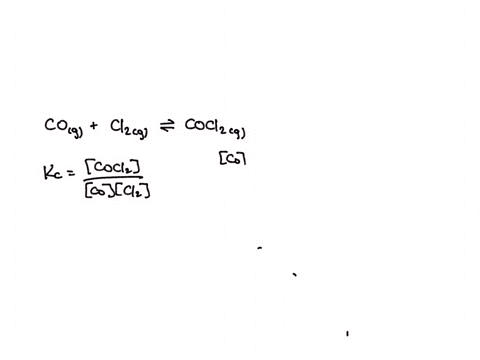 CO(g) + Cl2(g) ⇌ COCl2(g)
[CO]
Kc = [COCl2] / [CO][Cl2]